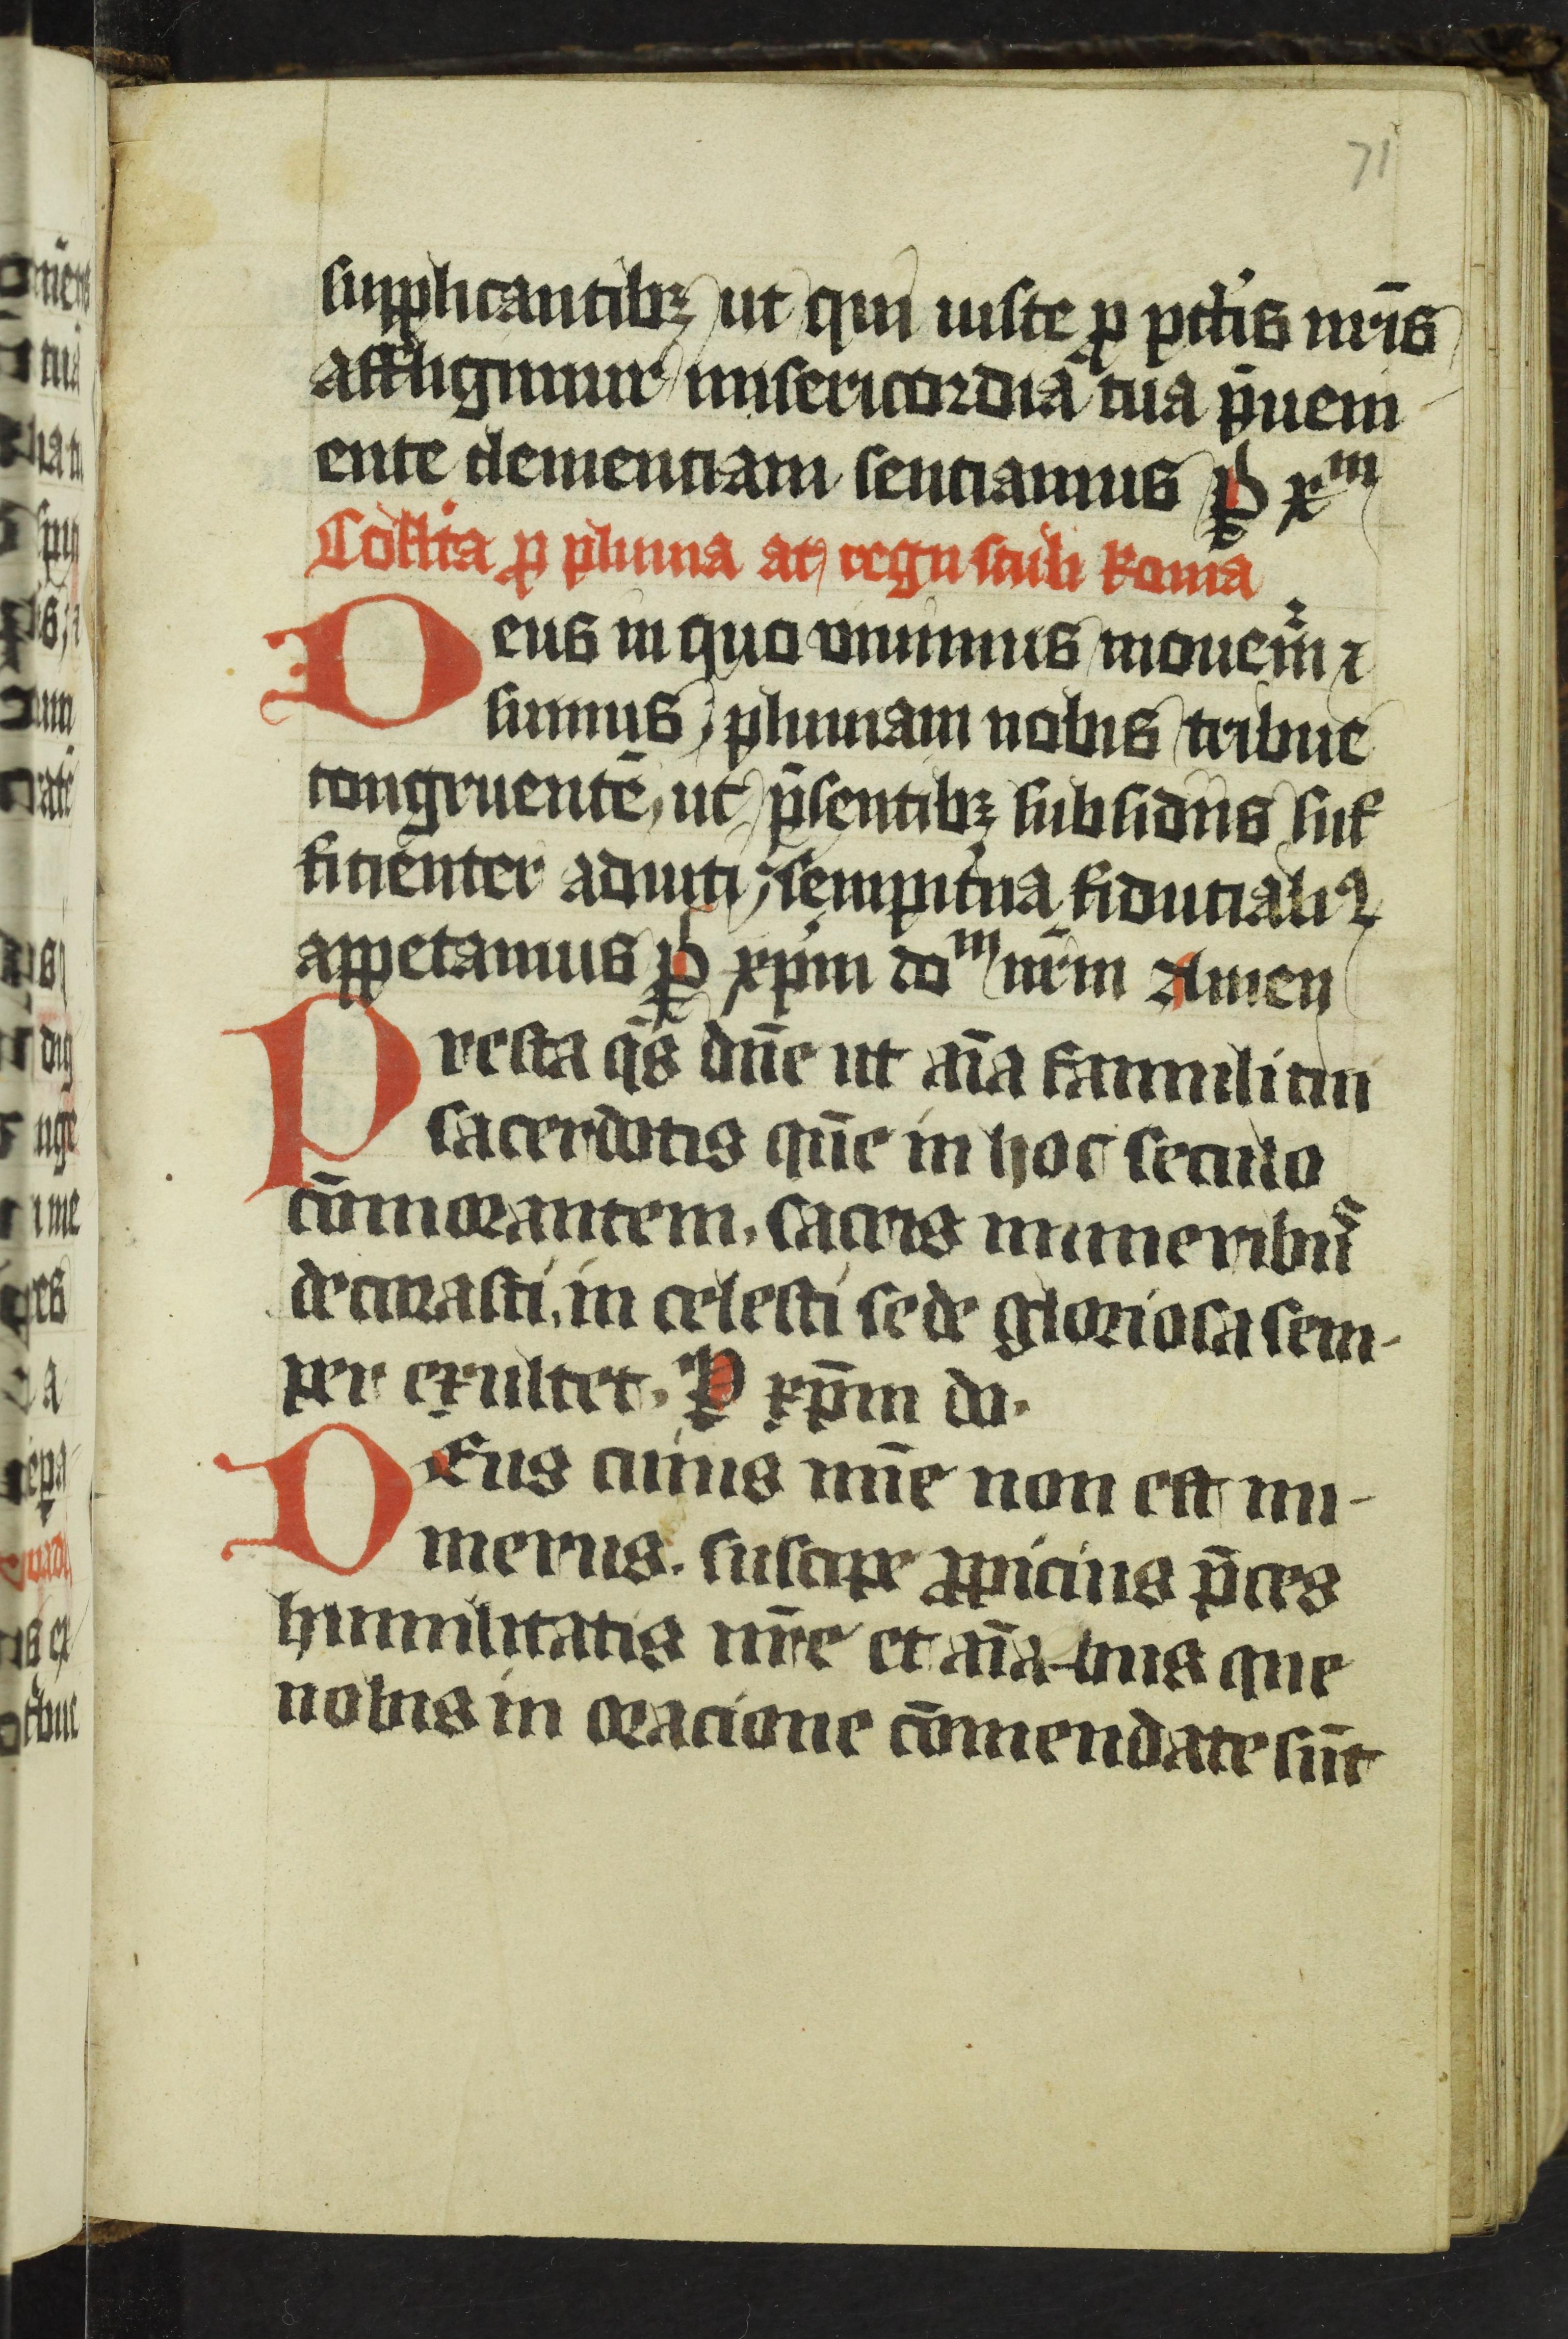 71
supplicantibꝫ ut qui iuste ꝓ pctis nr̄is
affligimur misericordia tua p̄ueni
ente clementiam sentiamus P xᵐ
Collcta ꝓ pluuia at
Deus in quo viuimus mouem̄ ⁊
sumus pluuiam nobis tribue
congruentē, ut p̄sentibꝫ subsidiis suf
ficienter adiuti, sempit'na fiducialiꝰ
appetamus P xp̄m doᵐ nr̄m Amen
Presta qs̄ dn̄e ut aīa famuli tui
sacerdotis quē in hoc seculo
cōmorantem, sacris muneribus
decorasti, in celesti sede gloriosa sem-
per exultet. P xp̄m do.
DEus cuius mīe non est nu-
merus. suscipe ꝓpicius p̄ces
humilitatis nr̄e et aīa-bus que
nobis in oracione cōmendate sūt